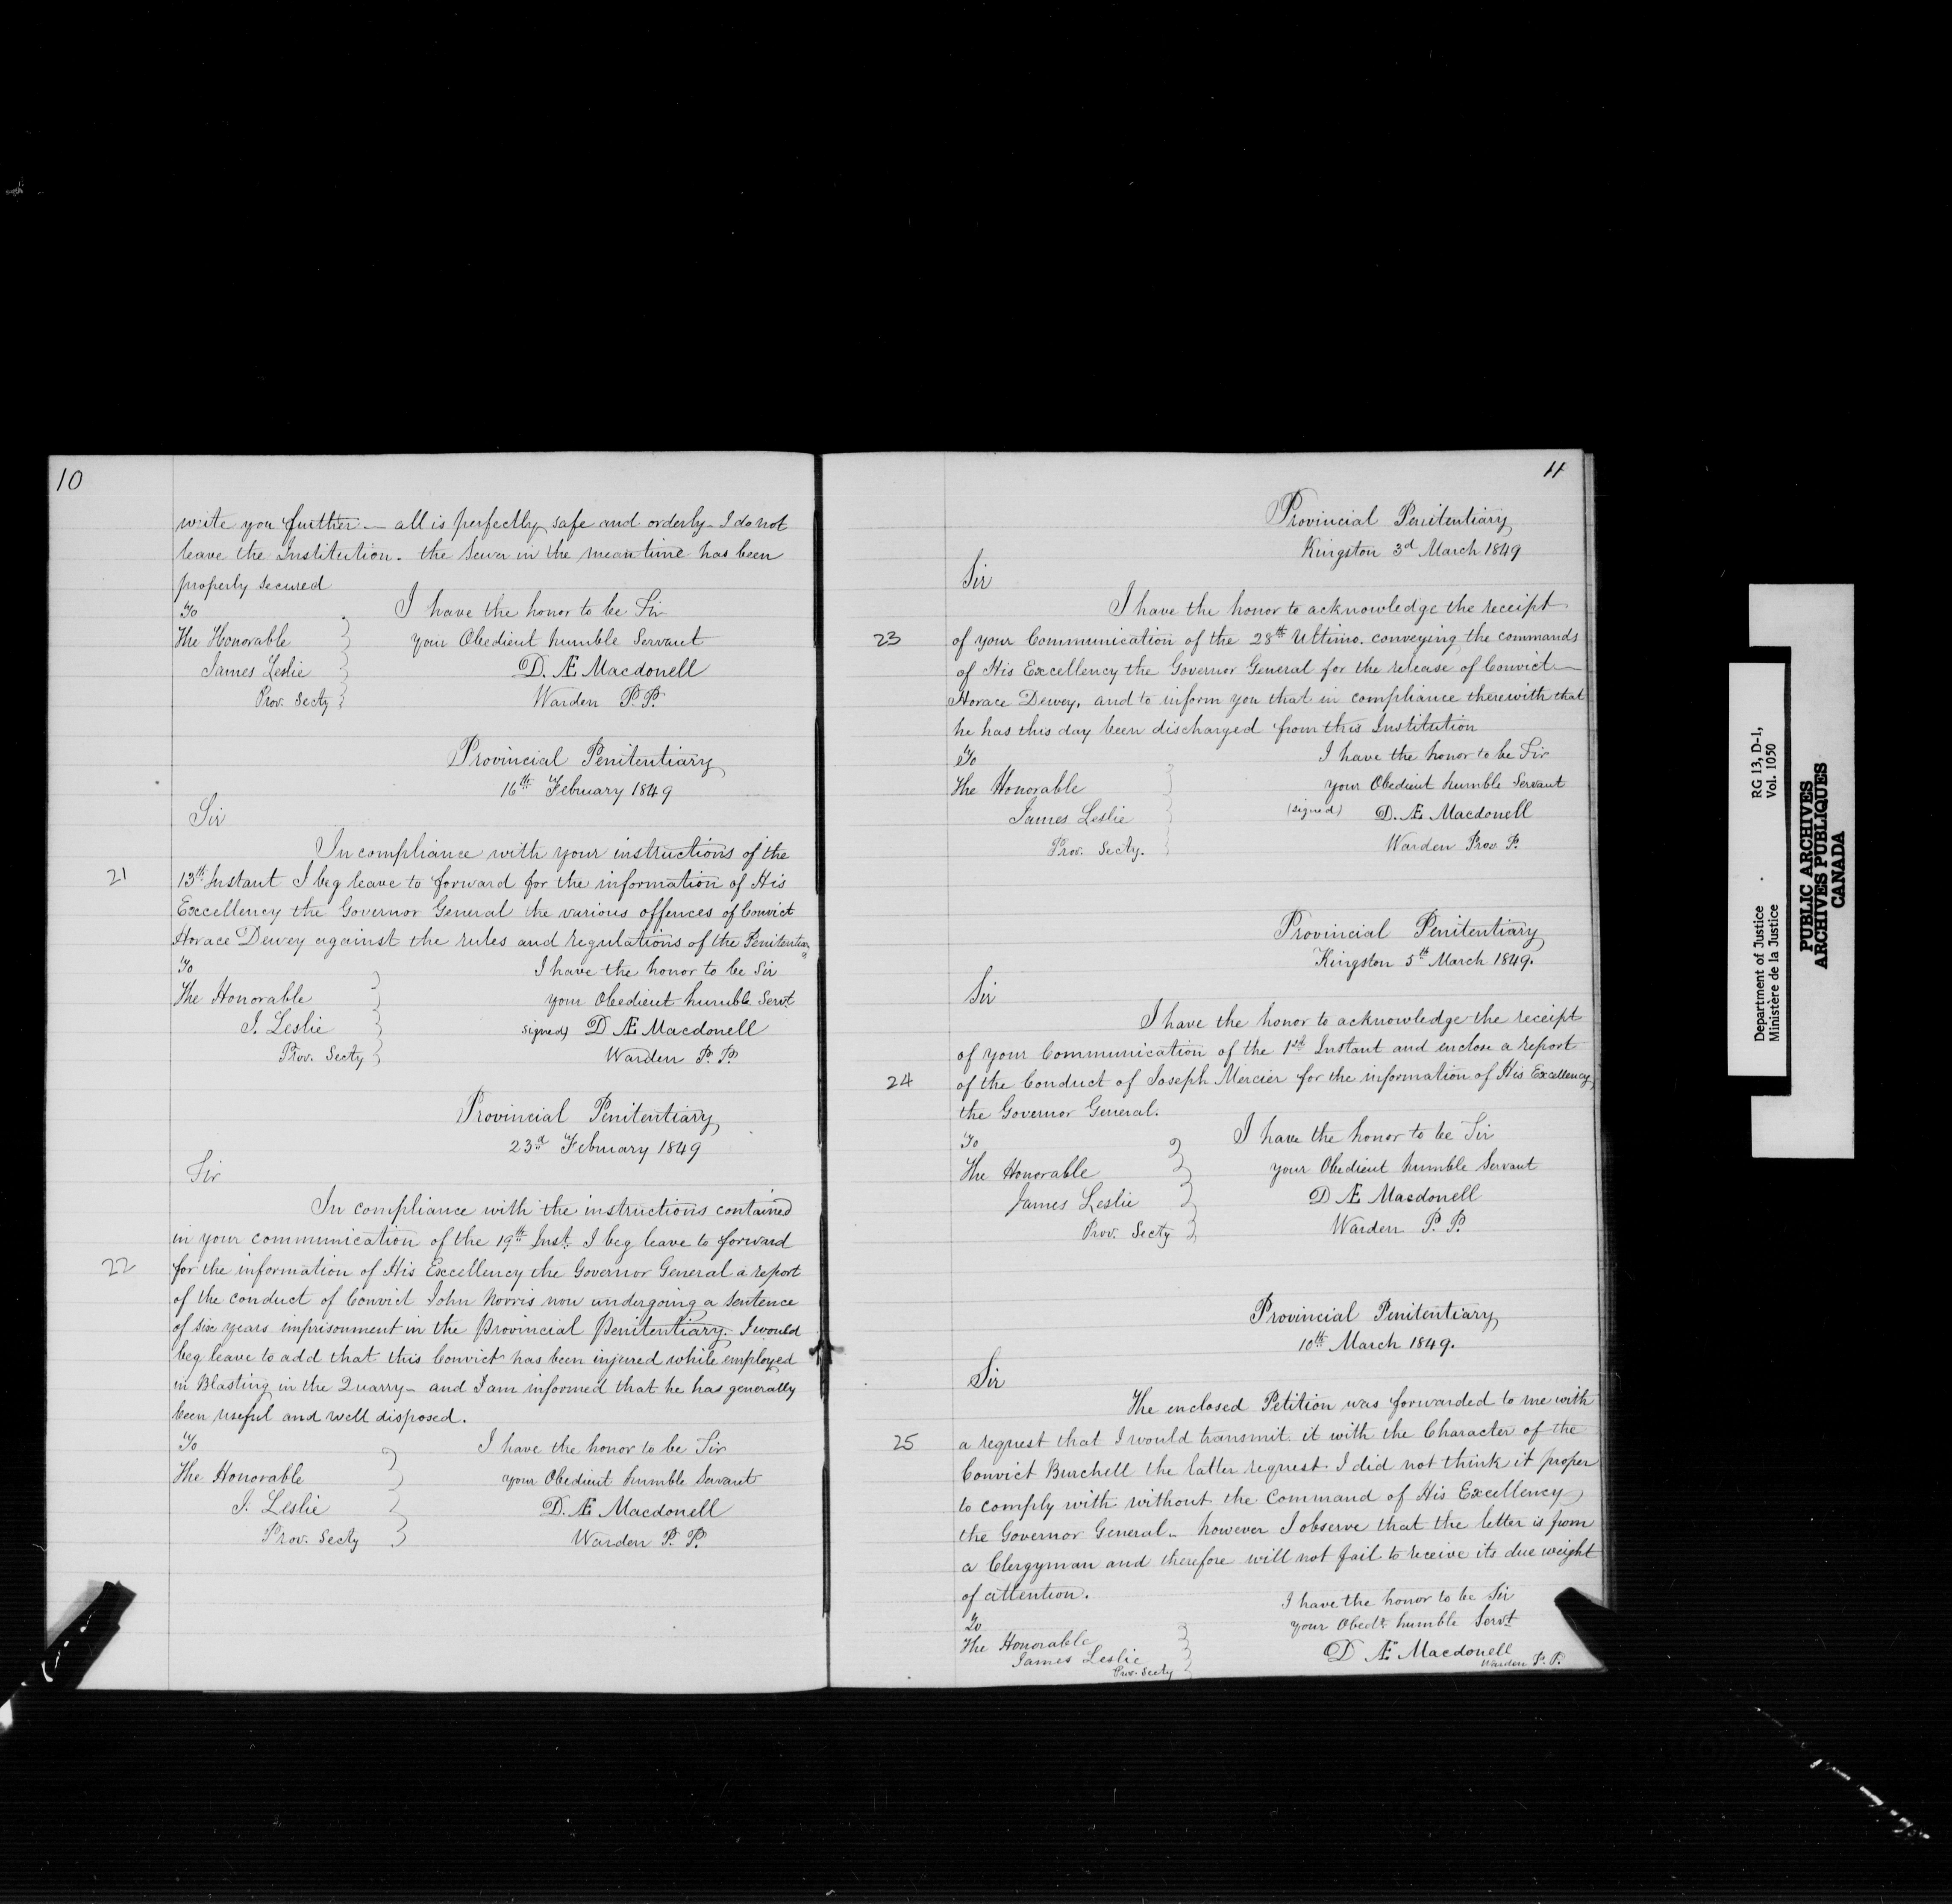 10
write you further — all is perfectly safe and orderly - I do not
leave the Institution. the Sewer in the mean time has been
properly secured
To
I have the honor to be Sir
The Honorable
your Obedient humble Servant
James Leslie
D. Æ Macdonell
Prov. Secty
Warden P. P.
Provincial Penitentiary
16th February 1849
Sir
In compliance with your instructions of the
21
13th Instant I beg leave to forward for the information of His
Excellency the Governor General the various offences of Convict
Horace Dewey against the rules and regulations of the Penitentiary
To
I have the honor to be Sir
The Honorable
your Obedient humble Servt
J. Leslie
signed) D Æ Macdonell
Prov. Secty
Warden P. P.
Provincial Penitentiary
23d February 1849
Sir
In compliance with the instructions contained
in your communication of the 19th Inst. I beg leave to forward
22
for the information of His Excellency the Governor General a report
of the conduct of Convict John Norris now undergoing a sentence
of six years imprisonment in the Provincial Penitentiary. I would
beg leave to add that this Convict has been injured while employed
in Blasting in the Quarry - and I am informed that he has generally
been useful and well disposed.
To
I have the honor to be Sir
The Honorable
your Obedient humble Servant
J. Leslie
D. Æ Macdonell
Prov. Secty
Warden P. P.
11
Provincial Penitentiary
Kingston 3d March 1849
Sir
I have the honor to acknowledge the receipt
23
of your Communication of the 28th Ultimo. conveying the commands
of His Excellency the Governor General for the release of Convict —
Horace Dewey, and to inform you that in compliance therewith that
he has this day been discharged from this Institution
To
I have the honor to be Sir
The Honorable
your Obedient humble Servant
James Leslie
(signed) D. Æ. Macdonell
Prov. Secty.
Warden Prov P.
Provincial Penitentiary
Kingston 5th March 1849.
Sir
I have the honor to acknowledge the receipt
of your Communication of the 1st Instant and enclose a report
24
of the Conduct of Joseph Mercier for the information of His Excellency
the Governor General.
To
I have the honor to be Sir
The Honorable
your Obedient humble Servant
James Leslie
D Æ Macdonell
Prov. Secty
Warden P. P.
Provincial Penitentiary
10th March 1849.
Sir
The enclosed Petition was forwarded to me with
25
a request that I would transmit it with the Character of the
Convict Burchell the latter request I did not think it proper
to comply with without the Command of His Excellency
the Governor General - however I observe that the letter is from
a Clergyman and therefore will not fail to receive its due weight
of attention.
I have the honor to be Sir
To
your Obedt humble Servt
The Honorable
James Leslie
D Æ Macdonell
Prov. Secty
Warden P. P.
Department of Justice
Ministère de la Justice
RG 13, D-1,
Vol. 1050
PUBLIC ARCHIVES
ARCHIVES PUBLIQUES
CANADA